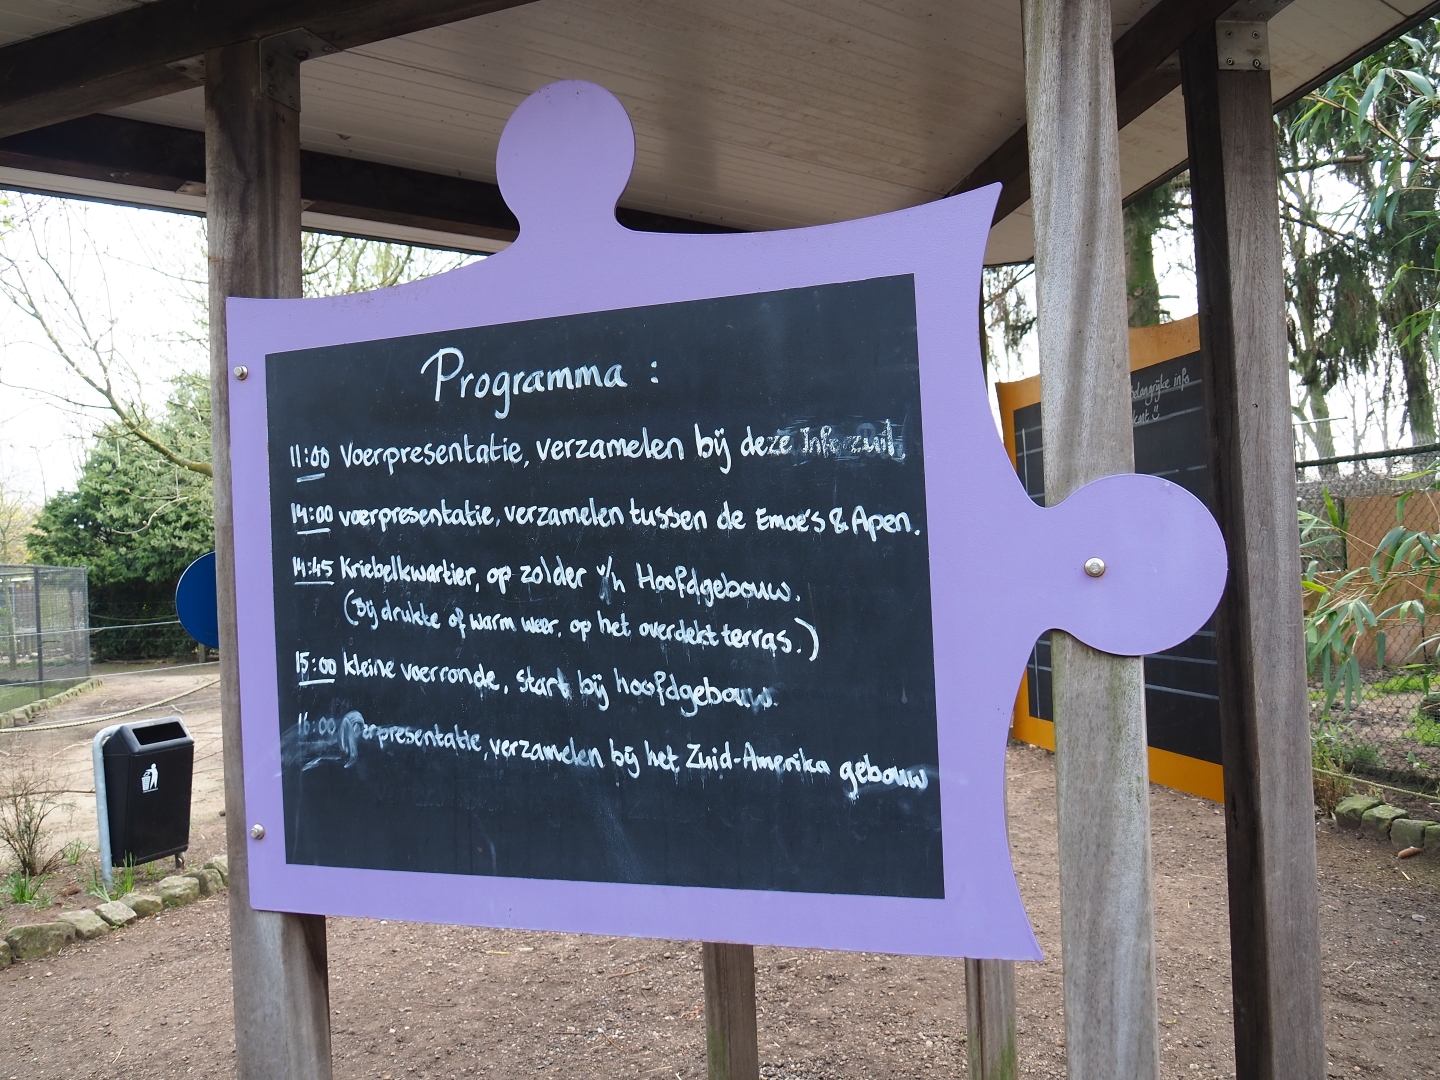 Programma :
11:00 Voerpresentatie, verzamelen bij deze Infozuil
14:00 voerpresentatie, verzamelen tussen de Emoe's & Apen.
14:45 Kriebelkwartier, op zolder v/h Hoofdgebouw.
(Bij drukte of warm weer, op het overdekt terras.)
15:00 kleine voerronde, start bij hoofdgebouw.
16:00 Voerpresentatie, verzamelen bij het Zuid-Amerika gebouw
belangrijke info